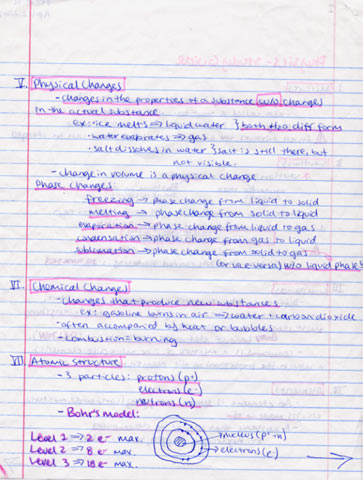 V. Physical Changes
- changes in the properties of a substance w/o changes
in the actual substance.
ex: ice melts ⇒ liquid water } both H2O, diff form
- water evaporates ⇒ gas
- salt dissolves in water } salt is still there, but
not visible.
- change in volume is a physical change
Phase Changes:
freezing → phase change from liquid to solid
melting → phase change from solid to liquid
evaporation → phase change from liquid to gas
condensation → phase change from gas to liquid
sublimation → phase change from solid to gas
(or vice versa) w/o liquid phase
VI. Chemical Changes
- changes that produce new substances
ex: gasoline burns in air ⇒ water + carbon dioxide
- often accompanied by heat or bubbles
- combustion: burning
VII. Atomic Structure
- 3 particles: protons (p+)
electrons (e-)
neutrons (n)
- Bohr's model:
Level 1 ⇒ 2 e- max.
Level 2 ⇒ 8 e- max.
Level 3 ⇒ 18 e- max.
nucleus (p+ + n)
→ electrons (e-)